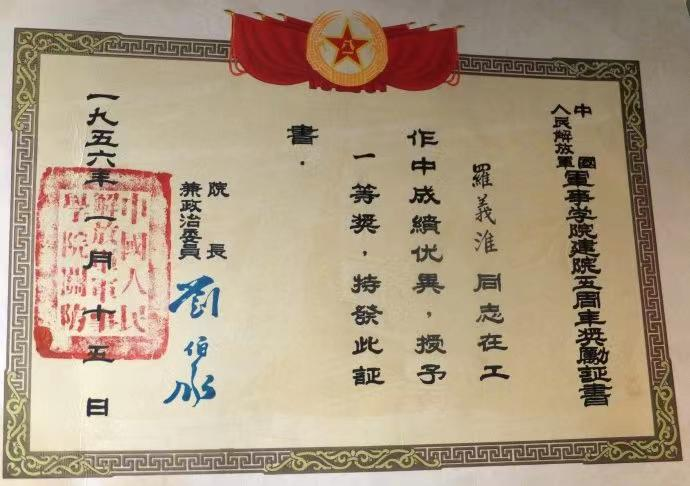 中國人民解放軍軍事学院建院五周年奖励証書
羅義淮同志在工
作中成績优異，授予
一等奖，特發此証
書．
院長
兼政治委員
劉伯承
一九五六年一月十五日
中國人民
解放軍軍事
學院關防
八一